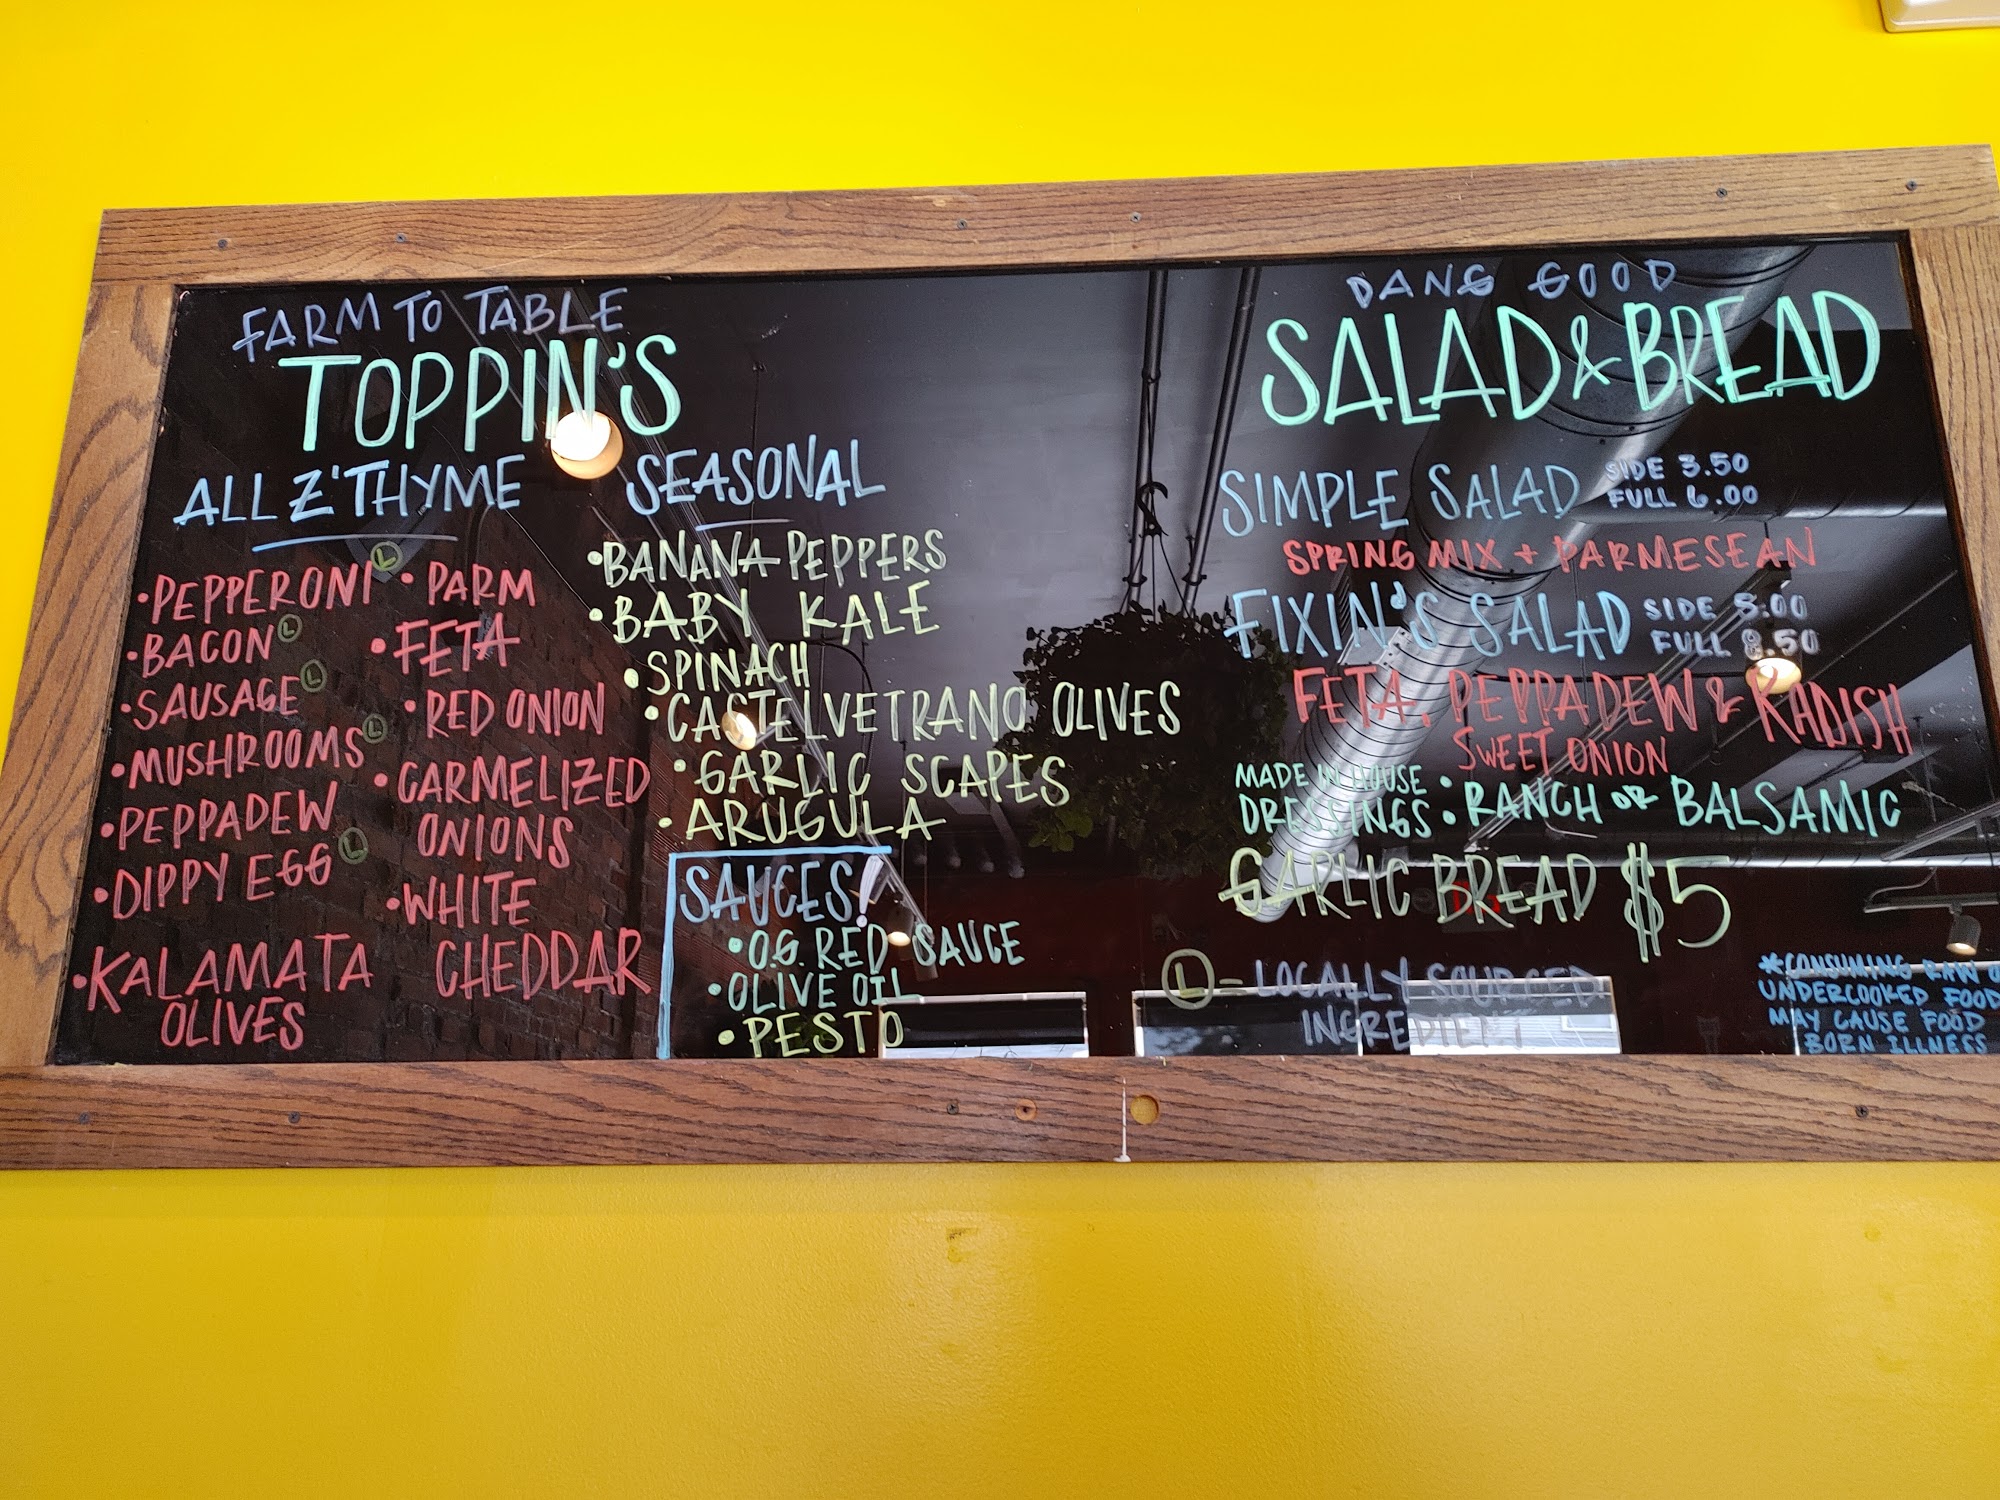 FARM TO TABLE
TOPPIN'S
ALL Z'THYME
•PEPPERONI Ⓛ
•BACON Ⓛ
•SAUSAGE Ⓛ
•MUSHROOMS Ⓛ
•PEPPADEW
•DIPPY EGG Ⓛ
•KALAMATA
OLIVES
•PARM
•FETA
•RED ONION
•CARMELIZED
ONIONS
•WHITE
CHEDDAR
SEASONAL
•BANANA PEPPERS
•BABY KALE
•SPINACH
•CASTELVETRANO OLIVES
•GARLIC SCAPES
•ARUGULA
SAUCES!
•O.G. RED SAUCE
•OLIVE OIL
•PESTO
DANG GOOD
SALAD & BREAD
SIMPLE SALAD SIDE 3.50
FULL 6.00
SPRING MIX + PARMESEAN
FIXIN'S SALAD SIDE 5.00
FULL 8.50
FETA, PEPPADEW & RADISH
SWEET ONION
MADE IN HOUSE
DRESSINGS : RANCH OR BALSAMIC
GARLIC BREAD $5
Ⓛ - LOCALLY SOURCED
INGREDIENT
*CONSUMING RAW O
UNDERCOOKED FOOD
MAY CAUSE FOOD
BORN ILLNESS